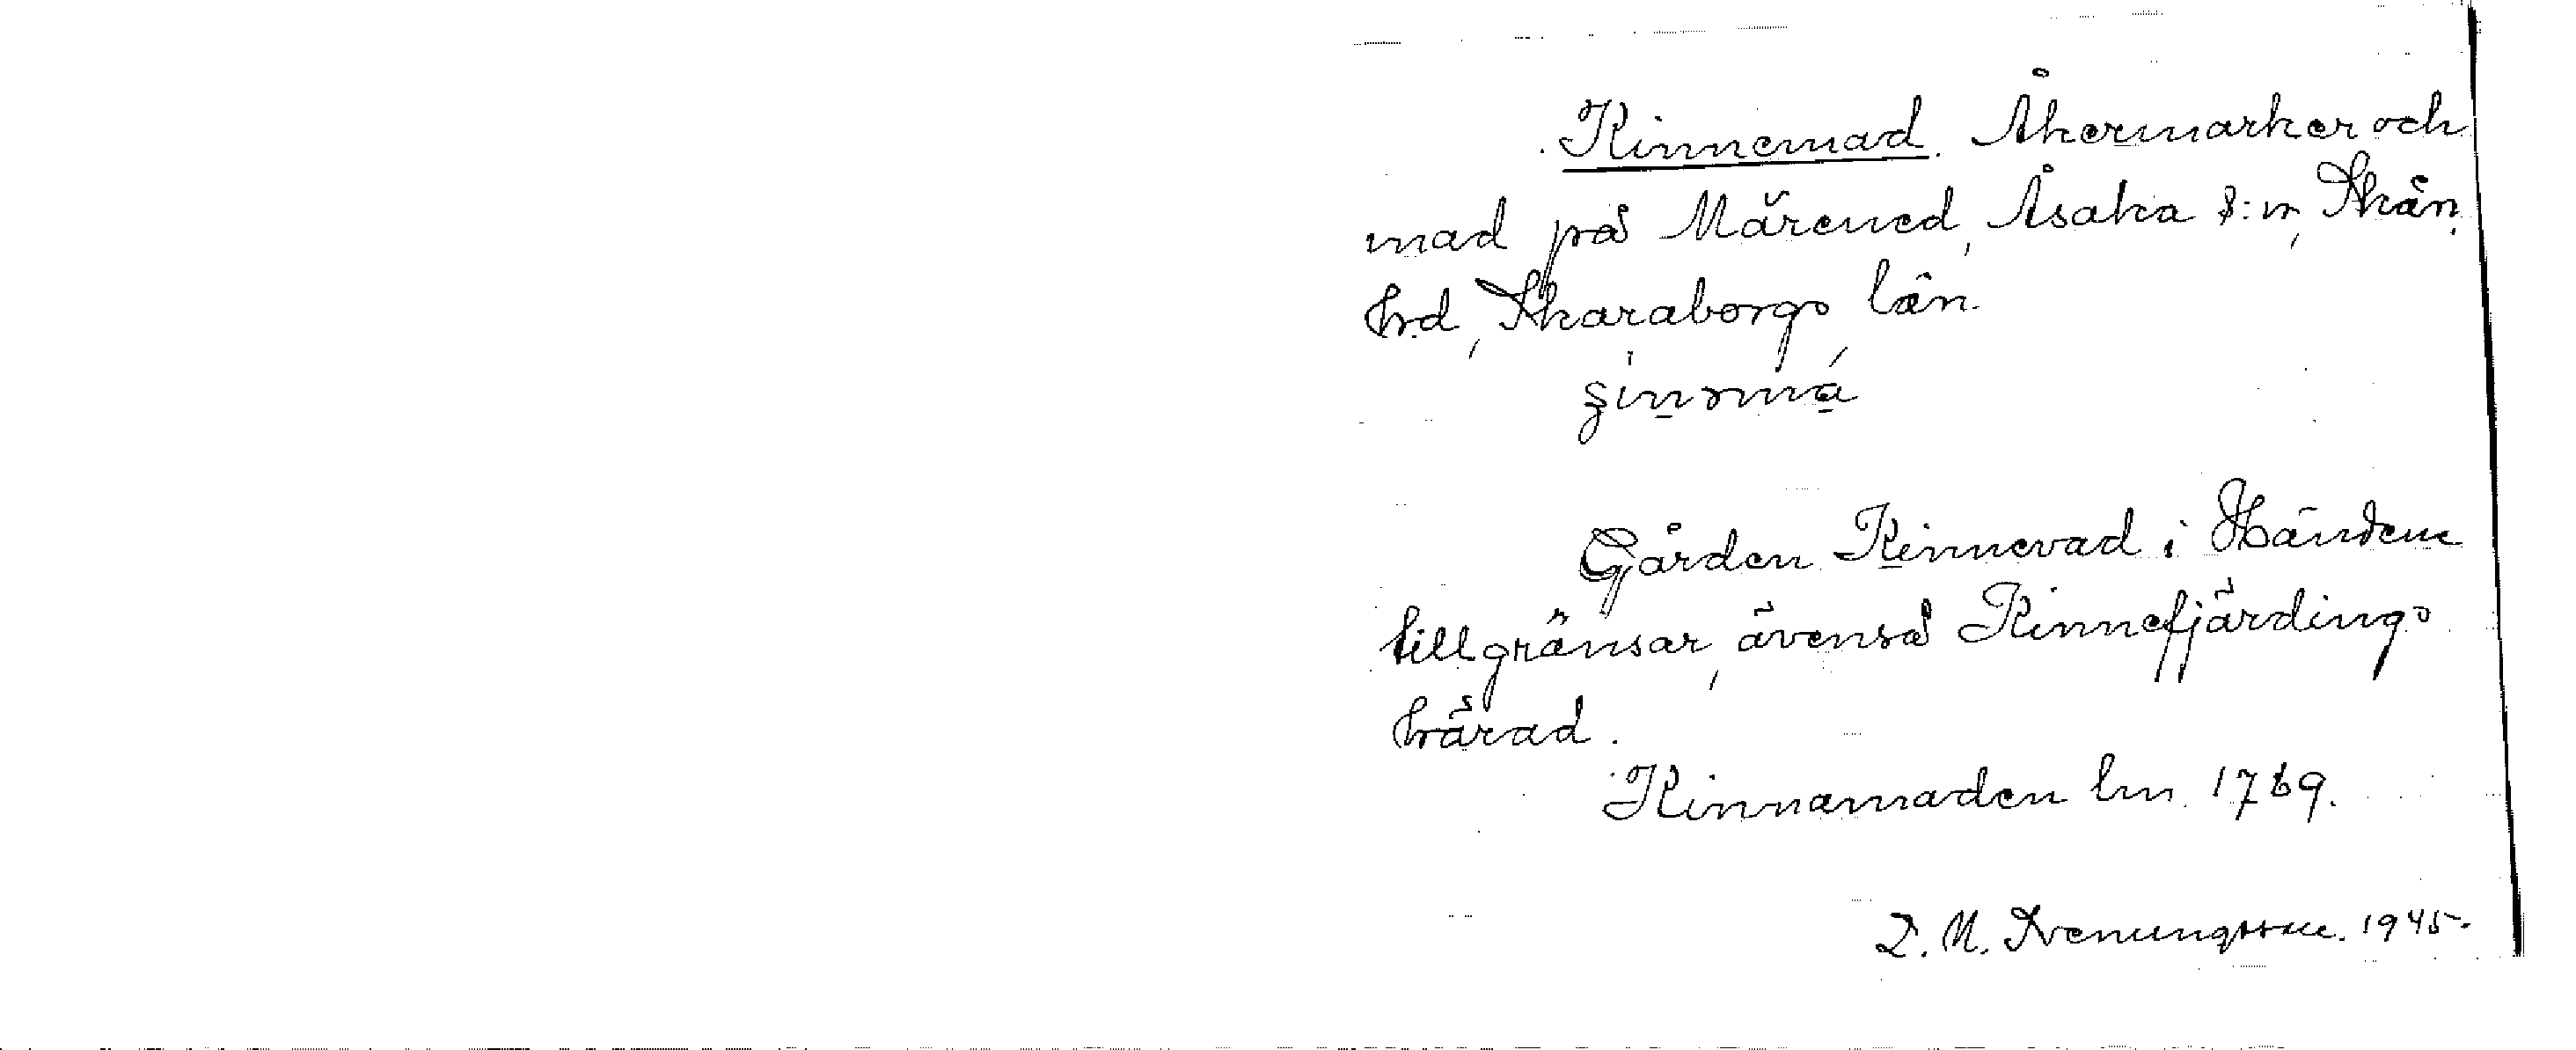 Kinnemad. Åkermarker och
mad på Märened, Åsaka s:n, Skån.
hd, Skaraborgs län.
Gården Kinnevad i Händene
tillgränsar, ävenså Kinnefjärdings
härad.
Kinnamaden lm 1769.
1945.